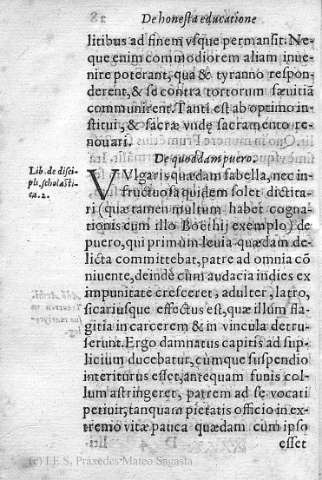 De honesta educatione
litibus ad finem vsque permansit. Ne-
que enim commodiorem aliam inue-
nire poterant, qua & tyranno respon-
derent, & se contra tortorum sæuitiā
communirent. Tanti est ab optimo in-
stitui, & sacræ vndę sacramento re-
nouari.
De quoddam puero.
Lib. de disci-
pli. scholasti-
ca. 2.
VVlgaris quædam fabella, nec in
fructuosa quidem solet dictita-
ri (quæ tamen multum habet cogna-
tionis cum illo Boethij exemplo) de
puero, qui primum leuia quædam de-
licta committebat, patre ad omnia cō
niuente, deindè cum audacia indies ex
impunitate cresceret, adulter, latro,
sicariusque effectus est, quæ illum fla-
gitia in carcerem & in vincula detru-
serunt. Ergo damnatus capitis ad sup-
plicium ducebatur, cùmque suspendio
interiturus esset, antequam funis col-
lum astringeret, patrem ad se vocari
petiuit, tanquam pietatis officio in ex-
tremo vitæ pauca quædam cum ipso
esset
(c) I.E.S. Práxedes Mateo Sagasta